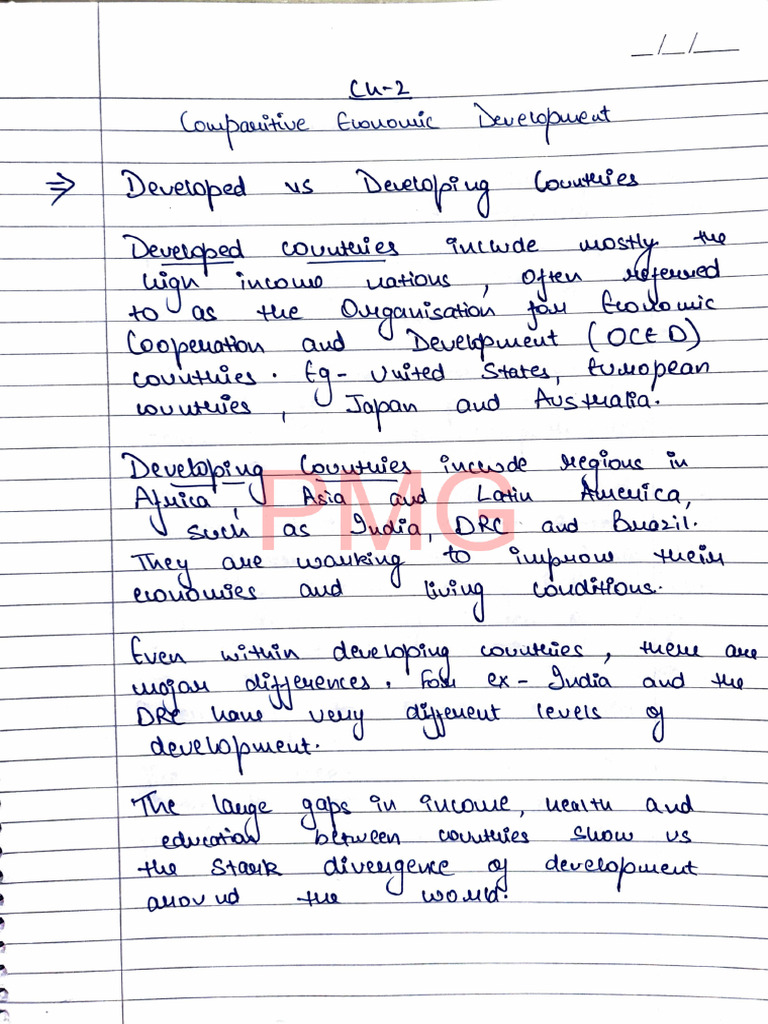 _/_/__
Ch-2
Comparitive Economic Development
⇒ Developed vs Developing Countries
Developed countries include mostly the
high income nations, often referred
to as the Organisation for Economic
Cooperation and Development (OCED)
countries. Eg- United States, European
countries, Japan and Australia.
Developing Countries include regions in
Africa, Asia and Latin America,
such as India, DRC and Brazil.
They are working to improve their
economies and living conditions.
PMG
Even within developing countries, there are
major differences. For ex- India and the
DRC have very different levels of
development.
The large gaps in income, health and
education between countries show us
the stark divergence of development
around the world.